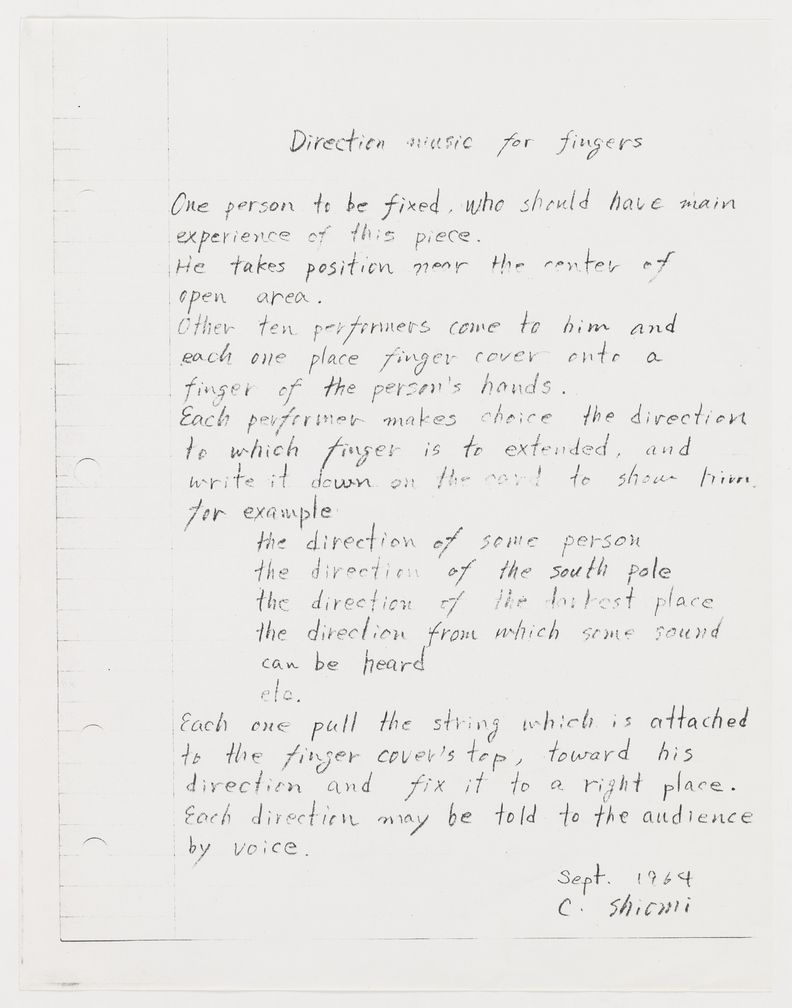 Direction music for fingers
One person to be fixed, who should have main
experience of this piece.
He takes position near the center of
open area.
Other ten performers come to him and
each one place finger cover onto a
finger of the person's hands.
Each performer makes choice the direction
to which finger is to extended, and
write it down on the card to show him.
for example
the direction of some person
the direction of the south pole
the direction of the darkest place
the direction from which some sound
can be heard
etc.
Each one pull the string which is attached
to the finger cover's top, toward his
direction and fix it to a right place.
Each direction may be told to the audience
by voice.
Sept. 1964
C. Shiomi